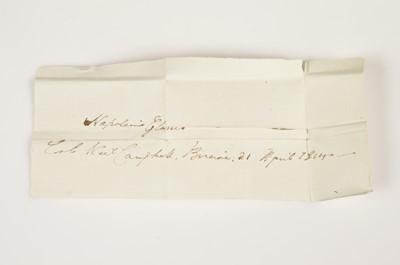 Napoleon's Glass
Col. Neil Campbell, 21 April 1814